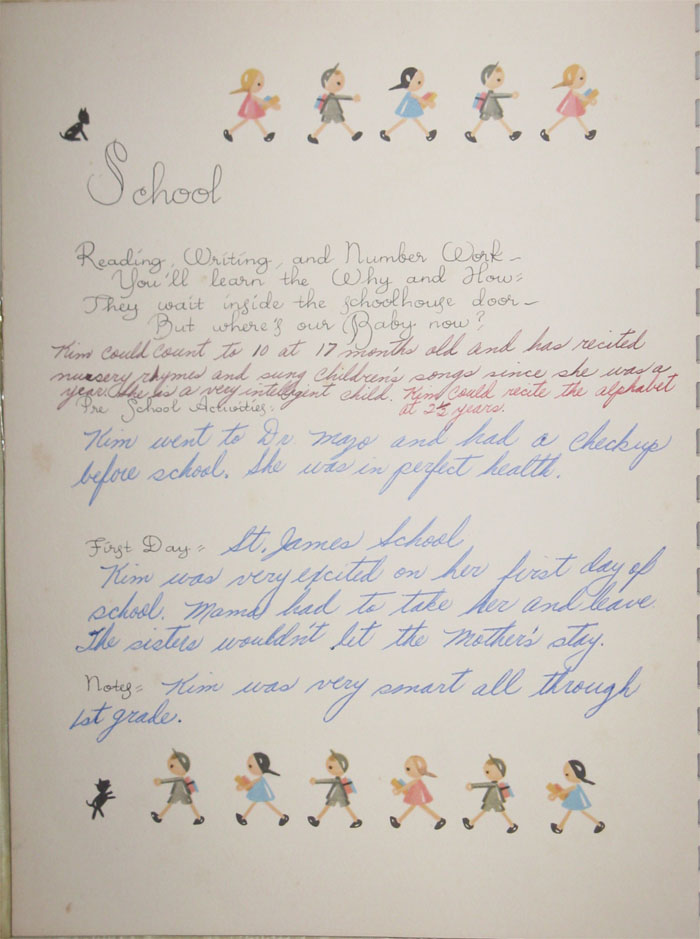 School
Reading, Writing, and Number Work—
You'll learn the Why and How:
They wait inside the schoolhouse door—
But where's our Baby now?
Kim could count to 10 at 17 months old and has recited
nursery rhymes and sung children's songs since she was a
year. She is a very intelligent child. Kim could recite the alphabet
at 2½ years.
Pre School Activities:
Kim went to Dr. Mazo and had a checkup
before school. She was in perfect health.
First Day: St. James School
Kim was very excited on her first day of
school. Mama had to take her and leave.
The sisters wouldn't let the Mother's stay.
Notes: Kim was very smart all through
1st grade.